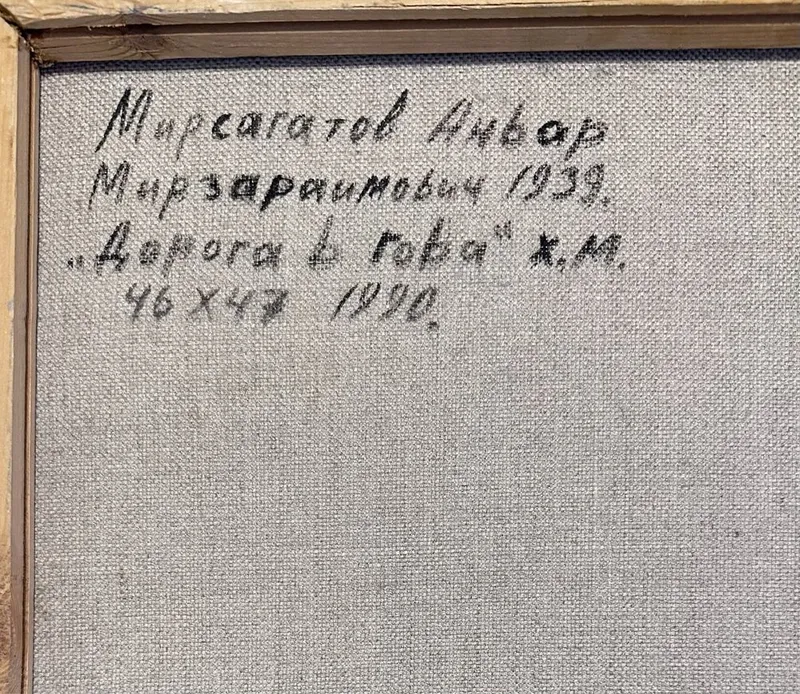 Мирсагатов Анвар
Мирзараимович 1939.
„Дорога в гова" х.м.
46 х 47 1990.